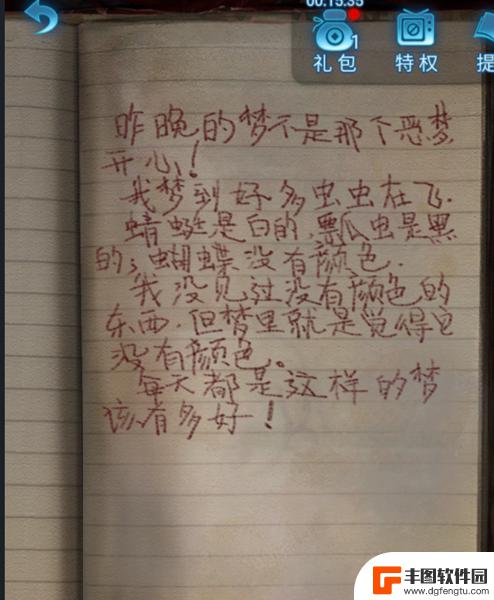 00:15:35
1
礼包
特权
提
昨晚的梦不是那个恶梦
开心!
我梦到好多虫虫在飞.
蜻蜓是白的,瓢虫是黑
的;蝴蝶没有颜色.
我没见过没有颜色的
东西.但梦里就是觉得它
没有颜色。
每天都是这样的梦
该有多好!
丰图软件园
www.dgfengtu.com